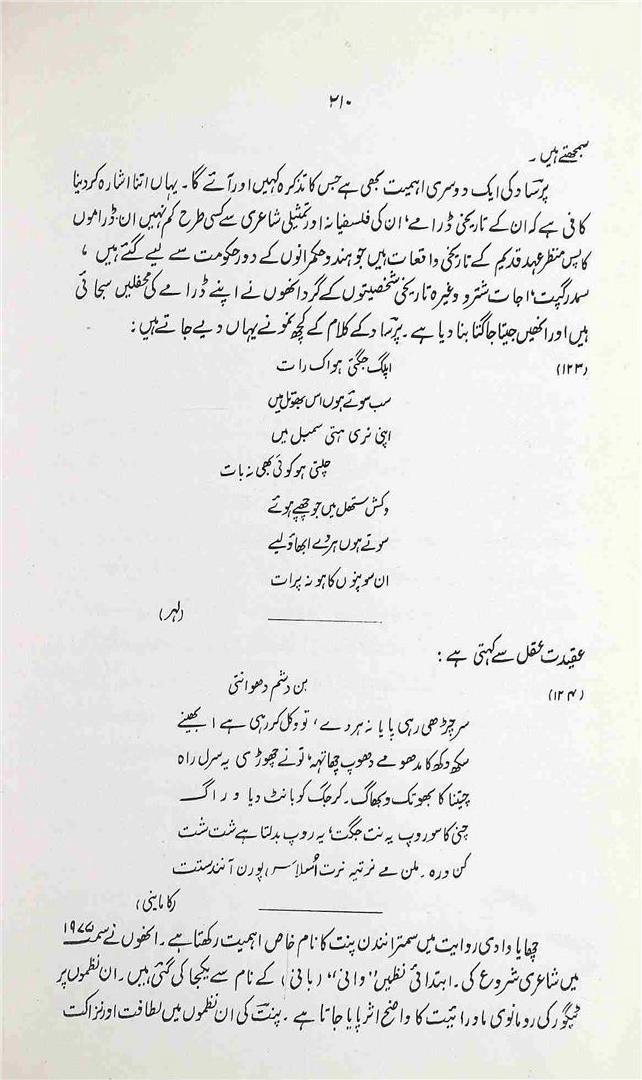 ۲۱۰
سمجھتے ہیں۔
پرساد کی ایک دوسری اہمیت بھی ہے جس کا تذکرہ کہیں اور آئے گا۔ یہاں اتنا اشارہ کر دینا
کافی ہے کہ ان کے تاریخی ڈرامے، ان کی فلسفیانہ اور تمثیلی شاعری سے کسی طرح کم نہیں ان ڈراموں
کا پس منظر عہد قدیم کے تاریخی واقعات ہیں جو ہندو حکمرانوں کے دور حکومت سے لیے گئے ہیں،
سمدر گپت، اجات شترو وغیرہ تاریخی شخصیتوں کے گرد انھوں نے اپنے ڈرامے کی محفلیں سجائی
ہیں اور انھیں جیتا جاگتا بنا دیا ہے۔ پرساد کے کلام کے کچھ نمونے یہاں دیے جاتے ہیں:
(۱۲۳) اپلگ جگتی ہو اک رات
سب سوئے ہوں اس بھوتل میں
اپنی نری ہتی سمبل میں
چلتی ہو کوئی بھی نہ بات
وکش ستھل میں جو چھپے ہوئے
سوتے ہوں ہردے ابھاؤ لیے
ان سوپنوں کا ہو نہ پرات
(لہر)
عقیدت عقل سے کہتی ہے:
(۱۲۴) بن دشم دھوانتی
سر چڑھی رہی پایا نہ ہردے، تو وکل کر رہی ہے ابھینے
سکھ دکھ کا مدھومے دھوپ چھانہہ، تو نے چھوڑی یہ سرل راہ
چیتنا کا بھوتک وبھاگ۔ کر جگ کو بانٹ دیا وراگ
چتی کا سوروپ یہ نت جگت، یہ روپ بدلتا ہے شت شت
کن ورہ۔ ملن مے نرتیہ نرت اُسلاس پورن آنند ستت
(کاماینی)
چھایا وادی روایت میں سمترا نندن پنت کا نام خاص اہمیت رکھتا ہے۔ انھوں نے سمت ۱۹۷۷
میں شاعری شروع کی۔ ابتدائی نظمیں "وانی" (بانی) کے نام سے یکجا کی گئی ہیں۔ ان نظموں پر
ٹیگور کی رومانوی ماورائیت کا واضح اثر پایا جاتا ہے۔ پنت کی ان نظموں میں لطافت اور نزاکت